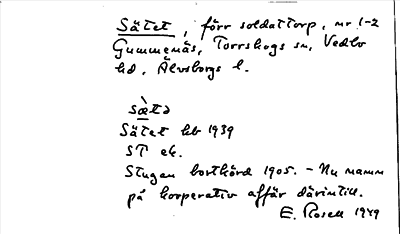 Sätet, förr soldattorp, nr 1-2
Gummenäs, Torrskogs sn, Vedbo
hd, Älvsborgs l.
sæ̀tə
Sätet hb 1939
ST ek.
Stugan bortkörd 1905. - Nu namn
på kooperativ affär därintill.
E. Rosell 1949